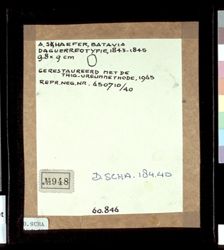 A. SCHAEFER, BATAVIA
DAGUERREOTYPIE, 1843-1845
9.8 x 9 cm
GERESTAUREERD MET DE
THIO-UREUMMETHODE, 1965
REPR. NEG. NR. 650710/
/40
No 948
D. SCHA. 184.40
60.846
D. SCHA